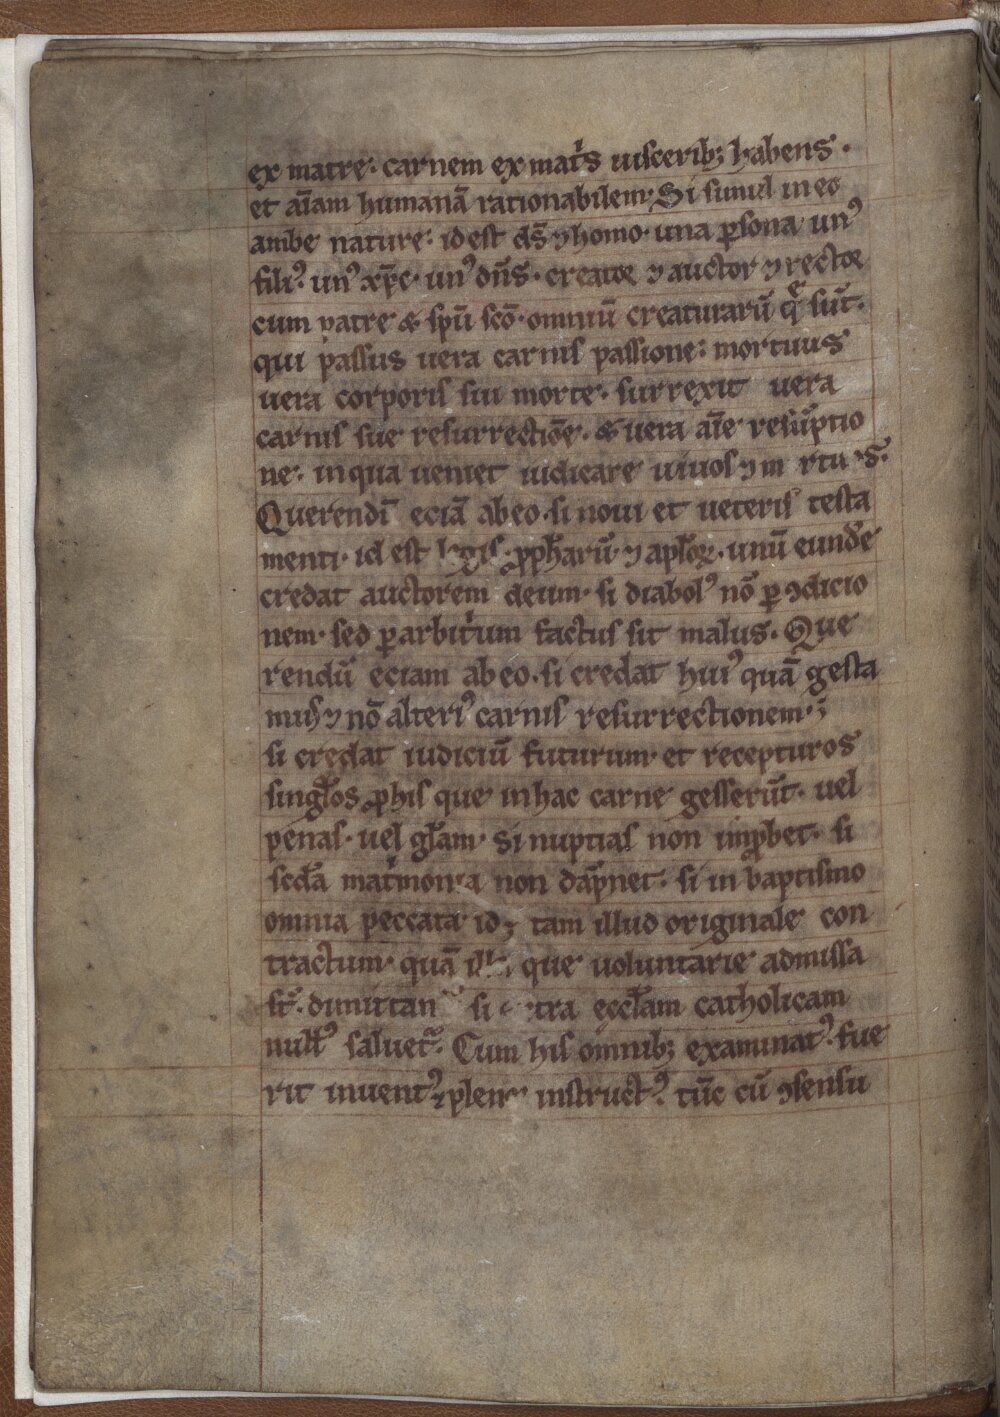 ex matre· carnem ex mat͛s uisceribꝫ habens·
et aīam humanā rationabilem· Si simul in eo
ambe nature· id est ds̄ ⁊ homo· una ꝑsona un᷒
fili᷒· un᷒ xp̄c· un᷒ dn̄s· creatoꝛ ⁊ auctor ⁊ rectoꝛ
cum patre & spū scō· omniū creaturarū q̄ sūt·
qui passus uera carnis passione· mortuus
uera corporis sui morte· surrexit uera
carnis sue resurrectiōe· & uera aīe resūptio
ne· in qua ueniet iudicare uiuos ⁊
Querendū eciā ab eo· si noui et ueteris testa
menti· id est legis· ꝓph̄arū ⁊ apl̄oꝝ· unū eundē
credat auctorem deum· si diabol᷒ nō ꝑ ꝯdicio
nem· sed ꝑ arbit͛um factus sit malus· Que
rendū eciam ab eo· si credat hui᷒ quā gesta
mus ⁊ nō alteri᷒ carnis resurrectionem·
si credat iudiciū futurum· et recepturos
singl̄os ꝓ his que in hac carne gesserūt· uel
penas· uel gl̄am· Si nuptias non imꝓbet· si
scd̄a mat͛monia non dāpnet· si in baptismo
omnia peccata id ē tam illud originale con
tractum· quā illa que uoluntarie admissa
st̄· dimittan si extra eccl̄am catholicam
null᷒ saluet᷑· Cum his omnibꝫ examinat᷒ fue
rit inuent᷒ ⁊ plene instruct᷒· tūc cū ꝯsensu